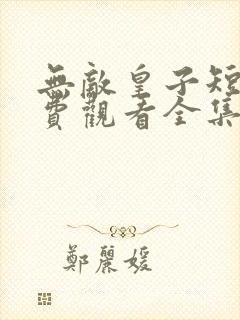 無敵皇子短
費觀看全集
鄭麗媛